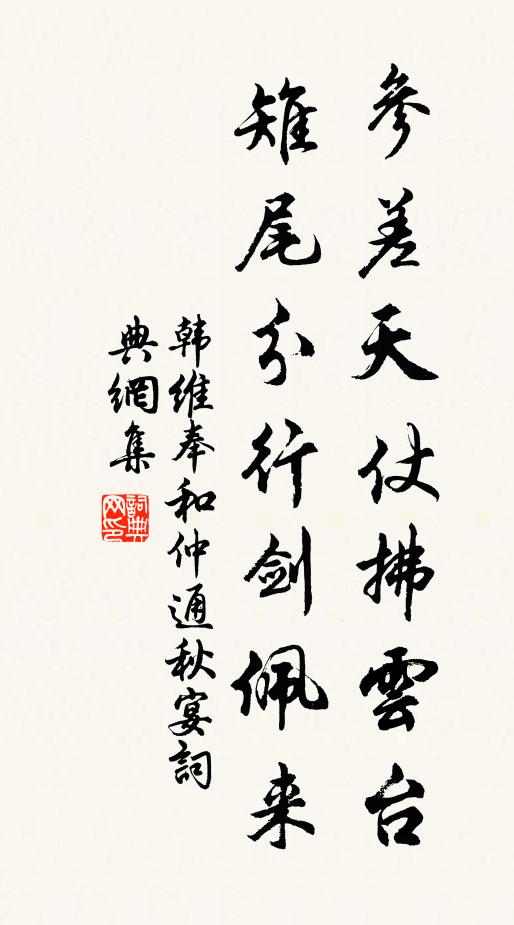 参差天仗拂雲台
雉尾分行劍佩来
韩維奉和仲通秋宴詞
典網集
詞典网印